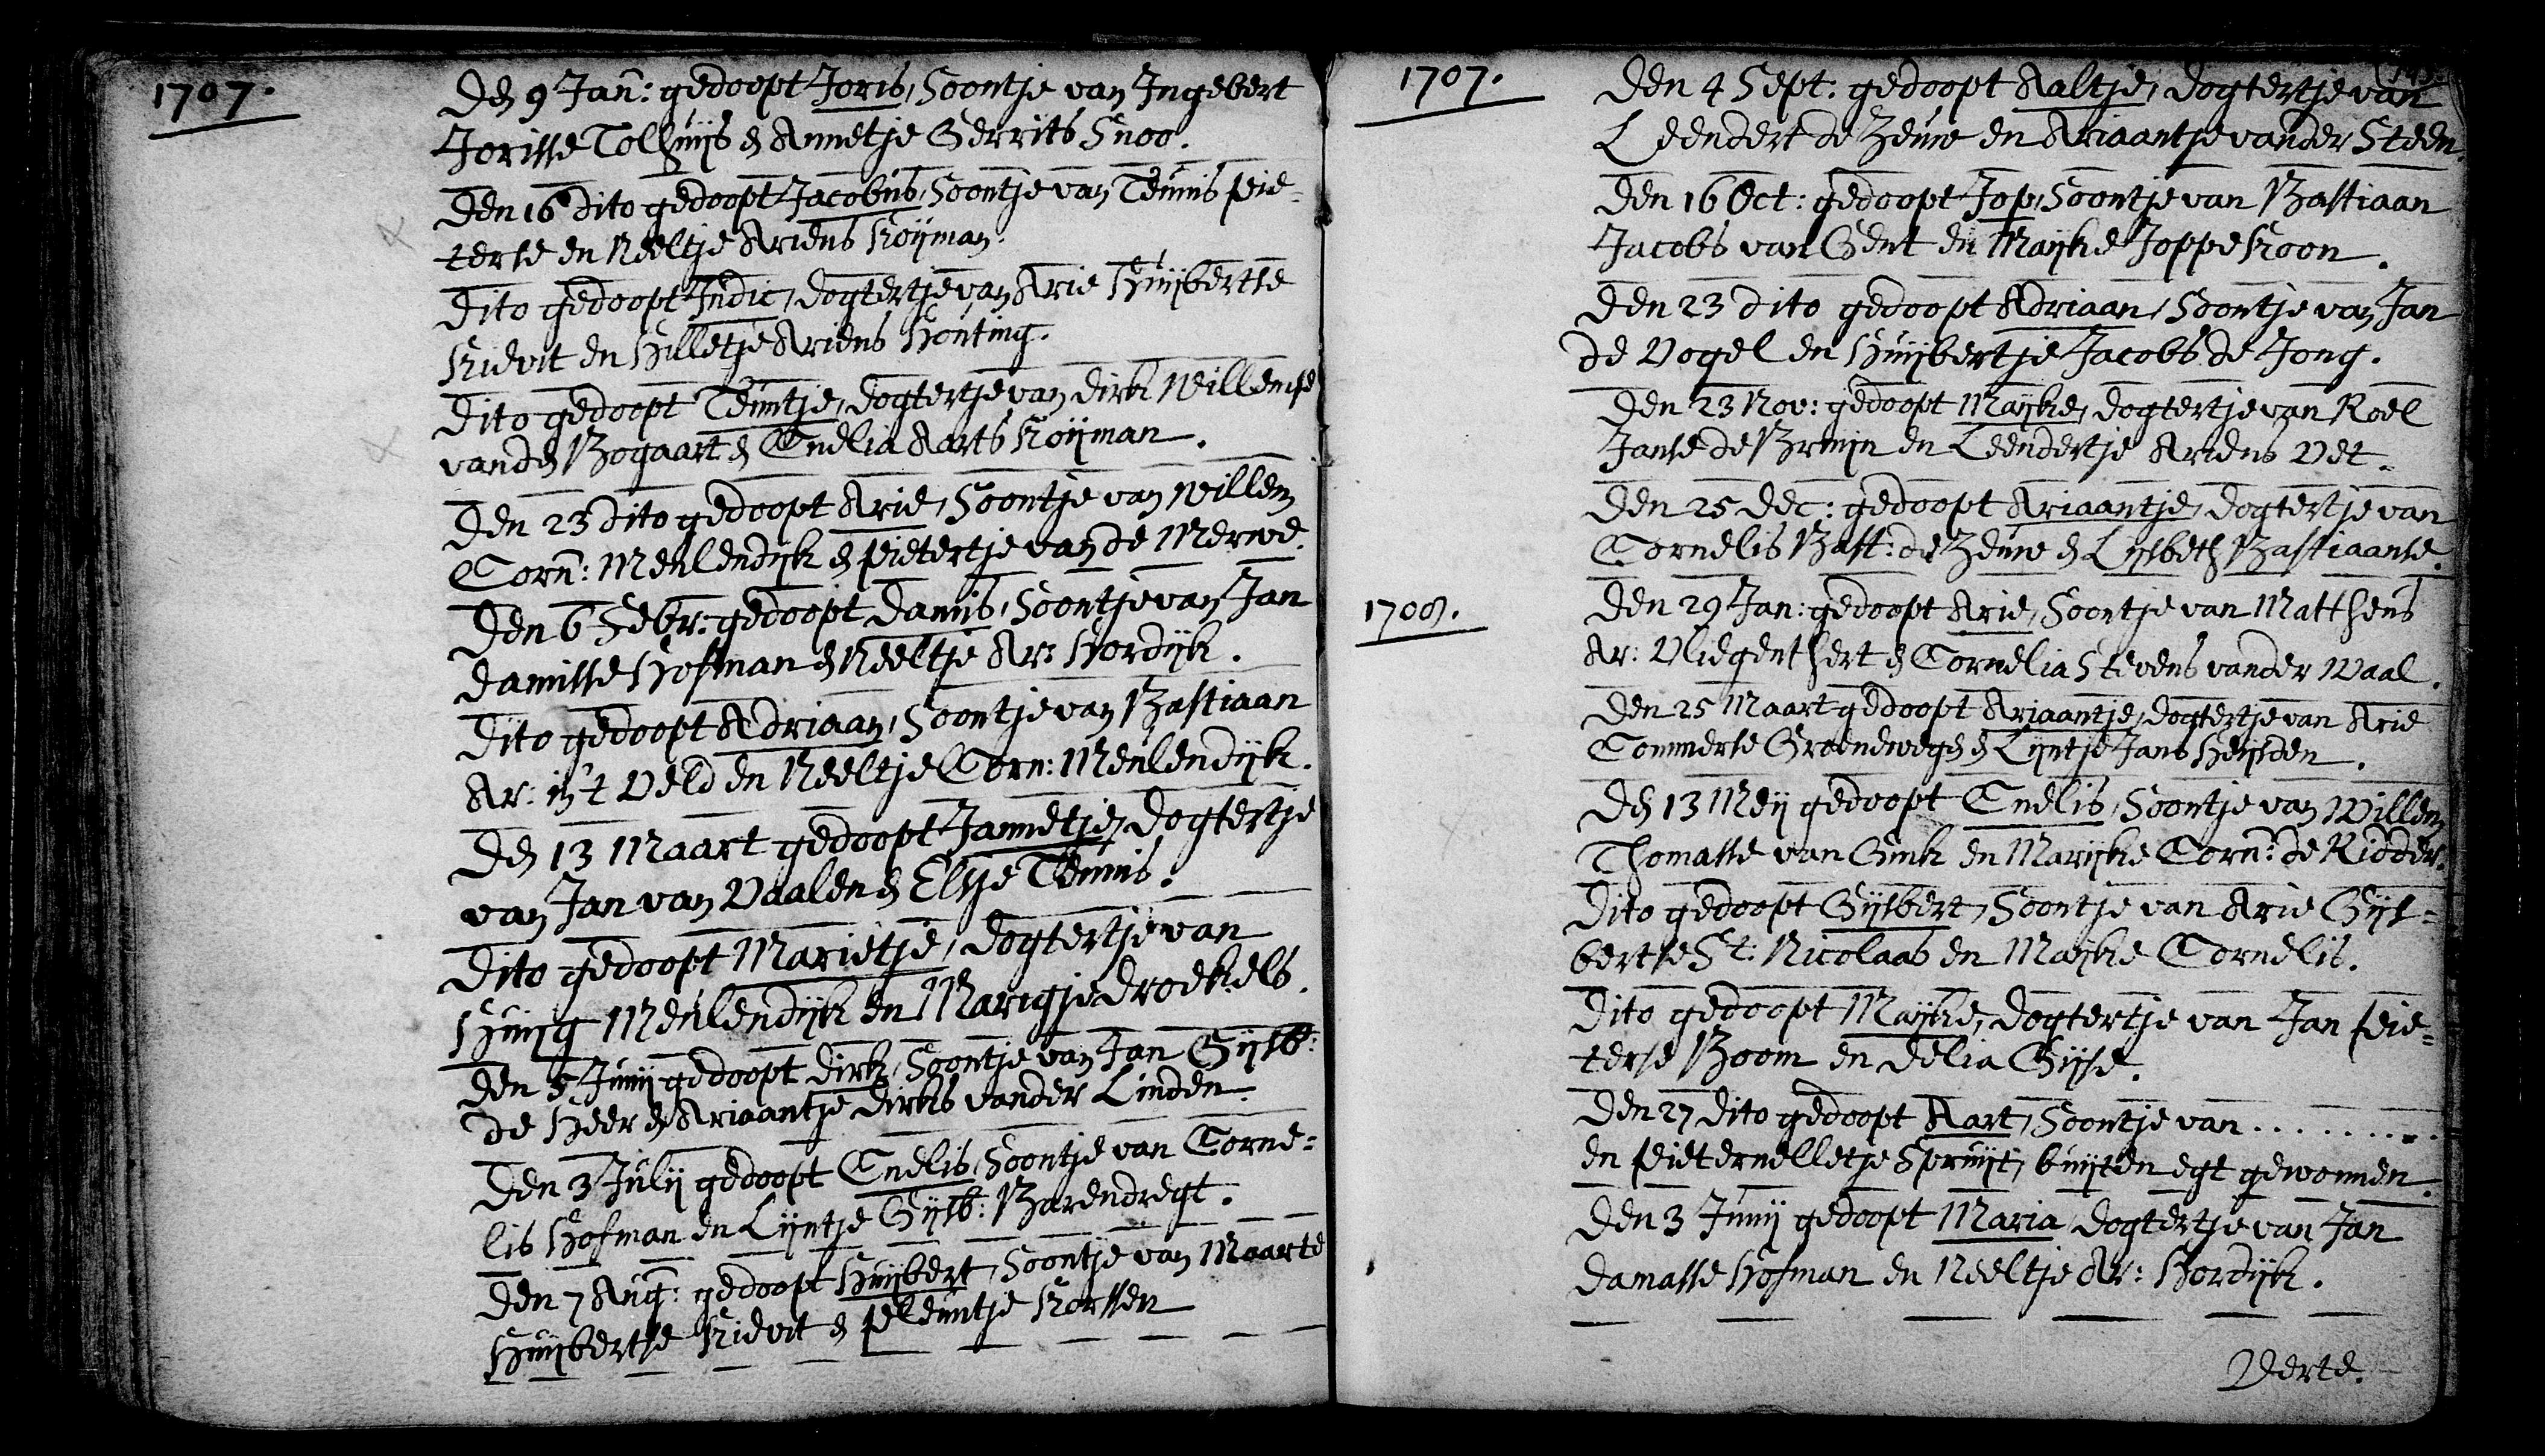 1707.
Den 9 Jan: gedoopt Joris, Soontje van Ingebert
Jorisse Tolhuijs en Annetje Gerrits Snoo.
Den 16 dito gedoopt Jacobus, Soontje van Teunis Pie-
terse en Neeltje Ariens Koijman.
Dito gedoopt Judic, dogtertje van Arie Huijbertse
Kievit en Hilletje Ariens Houting.
Dito gedoopt Teuntje, dogtertje van Dirk Willemse
vanden Bogaart en Cnelia Aarts Koijman.
Den 23 dito gedoopt Arie, Soontje van Willem
Corn: Meulendijk en Pietertje van de Merwe.
Den 6 Febr: gedoopt Damis, Soontje van Jan
Damisse Hofman en Neeltje Ar: Hordijk.
Dito gedoopt Adriaan, Soontje van Bastiaan
Ar: in 't Veld en Neeltje Corn: Meulendijk.
Den 13 Maart gedoopt Jannetje, dogtertje
van Jan van Vaalen en Elsje Teunis.
Dito gedoopt Marietje, dogtertje van
Huijg Meulendijk en Marigje Droekels.
Den 5 Junij gedoopt Dirk, Soontje van Jan Gijsb:
de Heer en Ariaantje Dirks vander Linden.
Den 3 Julij gedoopt Cnelis, Soontje van Corne=
lis Hofman en Lijntje Gijsb: Barendregt.
Den 7 Aug: gedoopt Huijbert, Soontje van Maarte
Huijbertse Kievit en Pleuntje Korssen
1707.
Den 4 Sept: gedoopt Aaltje, dogtertje van
Leendert de Zeuw en Ariaantje vander Steen.
Den 16 Oct: gedoopt Jop, Soontje van Bastiaan
Jacobs van Gent en Maijke Joppe Koon.
Den 23 dito gedoopt Adriaan, Soontje van Jan
de Vogel en Huijbertje Jacobs de Jong.
Den 23 Nov: gedoopt Maijke, dogtertje van Roel
Janse de Bruijn en Leendertje Ariens Vet.
Den 25 Dec: gedoopt Ariaantje, dogtertje van
Cornelis Bast: de Zeuw en Lijsbeth Bastiaanse.
1708.
Den 29 Jan: gedoopt Arie, Soontje van Mattheus
Ar: Vliegenthert en Cornelia Stevens vander Waal.
Den 25 Maart gedoopt Ariaantje, dogtertje van Arie
Commerse Groeneweg en Lijntje Jans Heijsden.
Den 13 Meij gedoopt Cnelis, Soontje van Willem
Thomasse van Gink en Marijke Corn: de Ridder.
Dito gedoopt Gijsbert, Soontje van Arie Gijs=
bertse St: Nicolaas en Maijke Cornelis.
Dito gedoopt Maijke, dogtertje van Jan Pie=
terse Boom en Delia Gijse.
Den 27 dito gedoopt Aart, Soontje van .........
en Pieternelletje Spruijt, buijten egt gewonnen.
Den 3 Junij gedoopt Maria, dogtertje van Jan
Damasse Hofman en Neeltje Ar: Hordijk.
Verte.